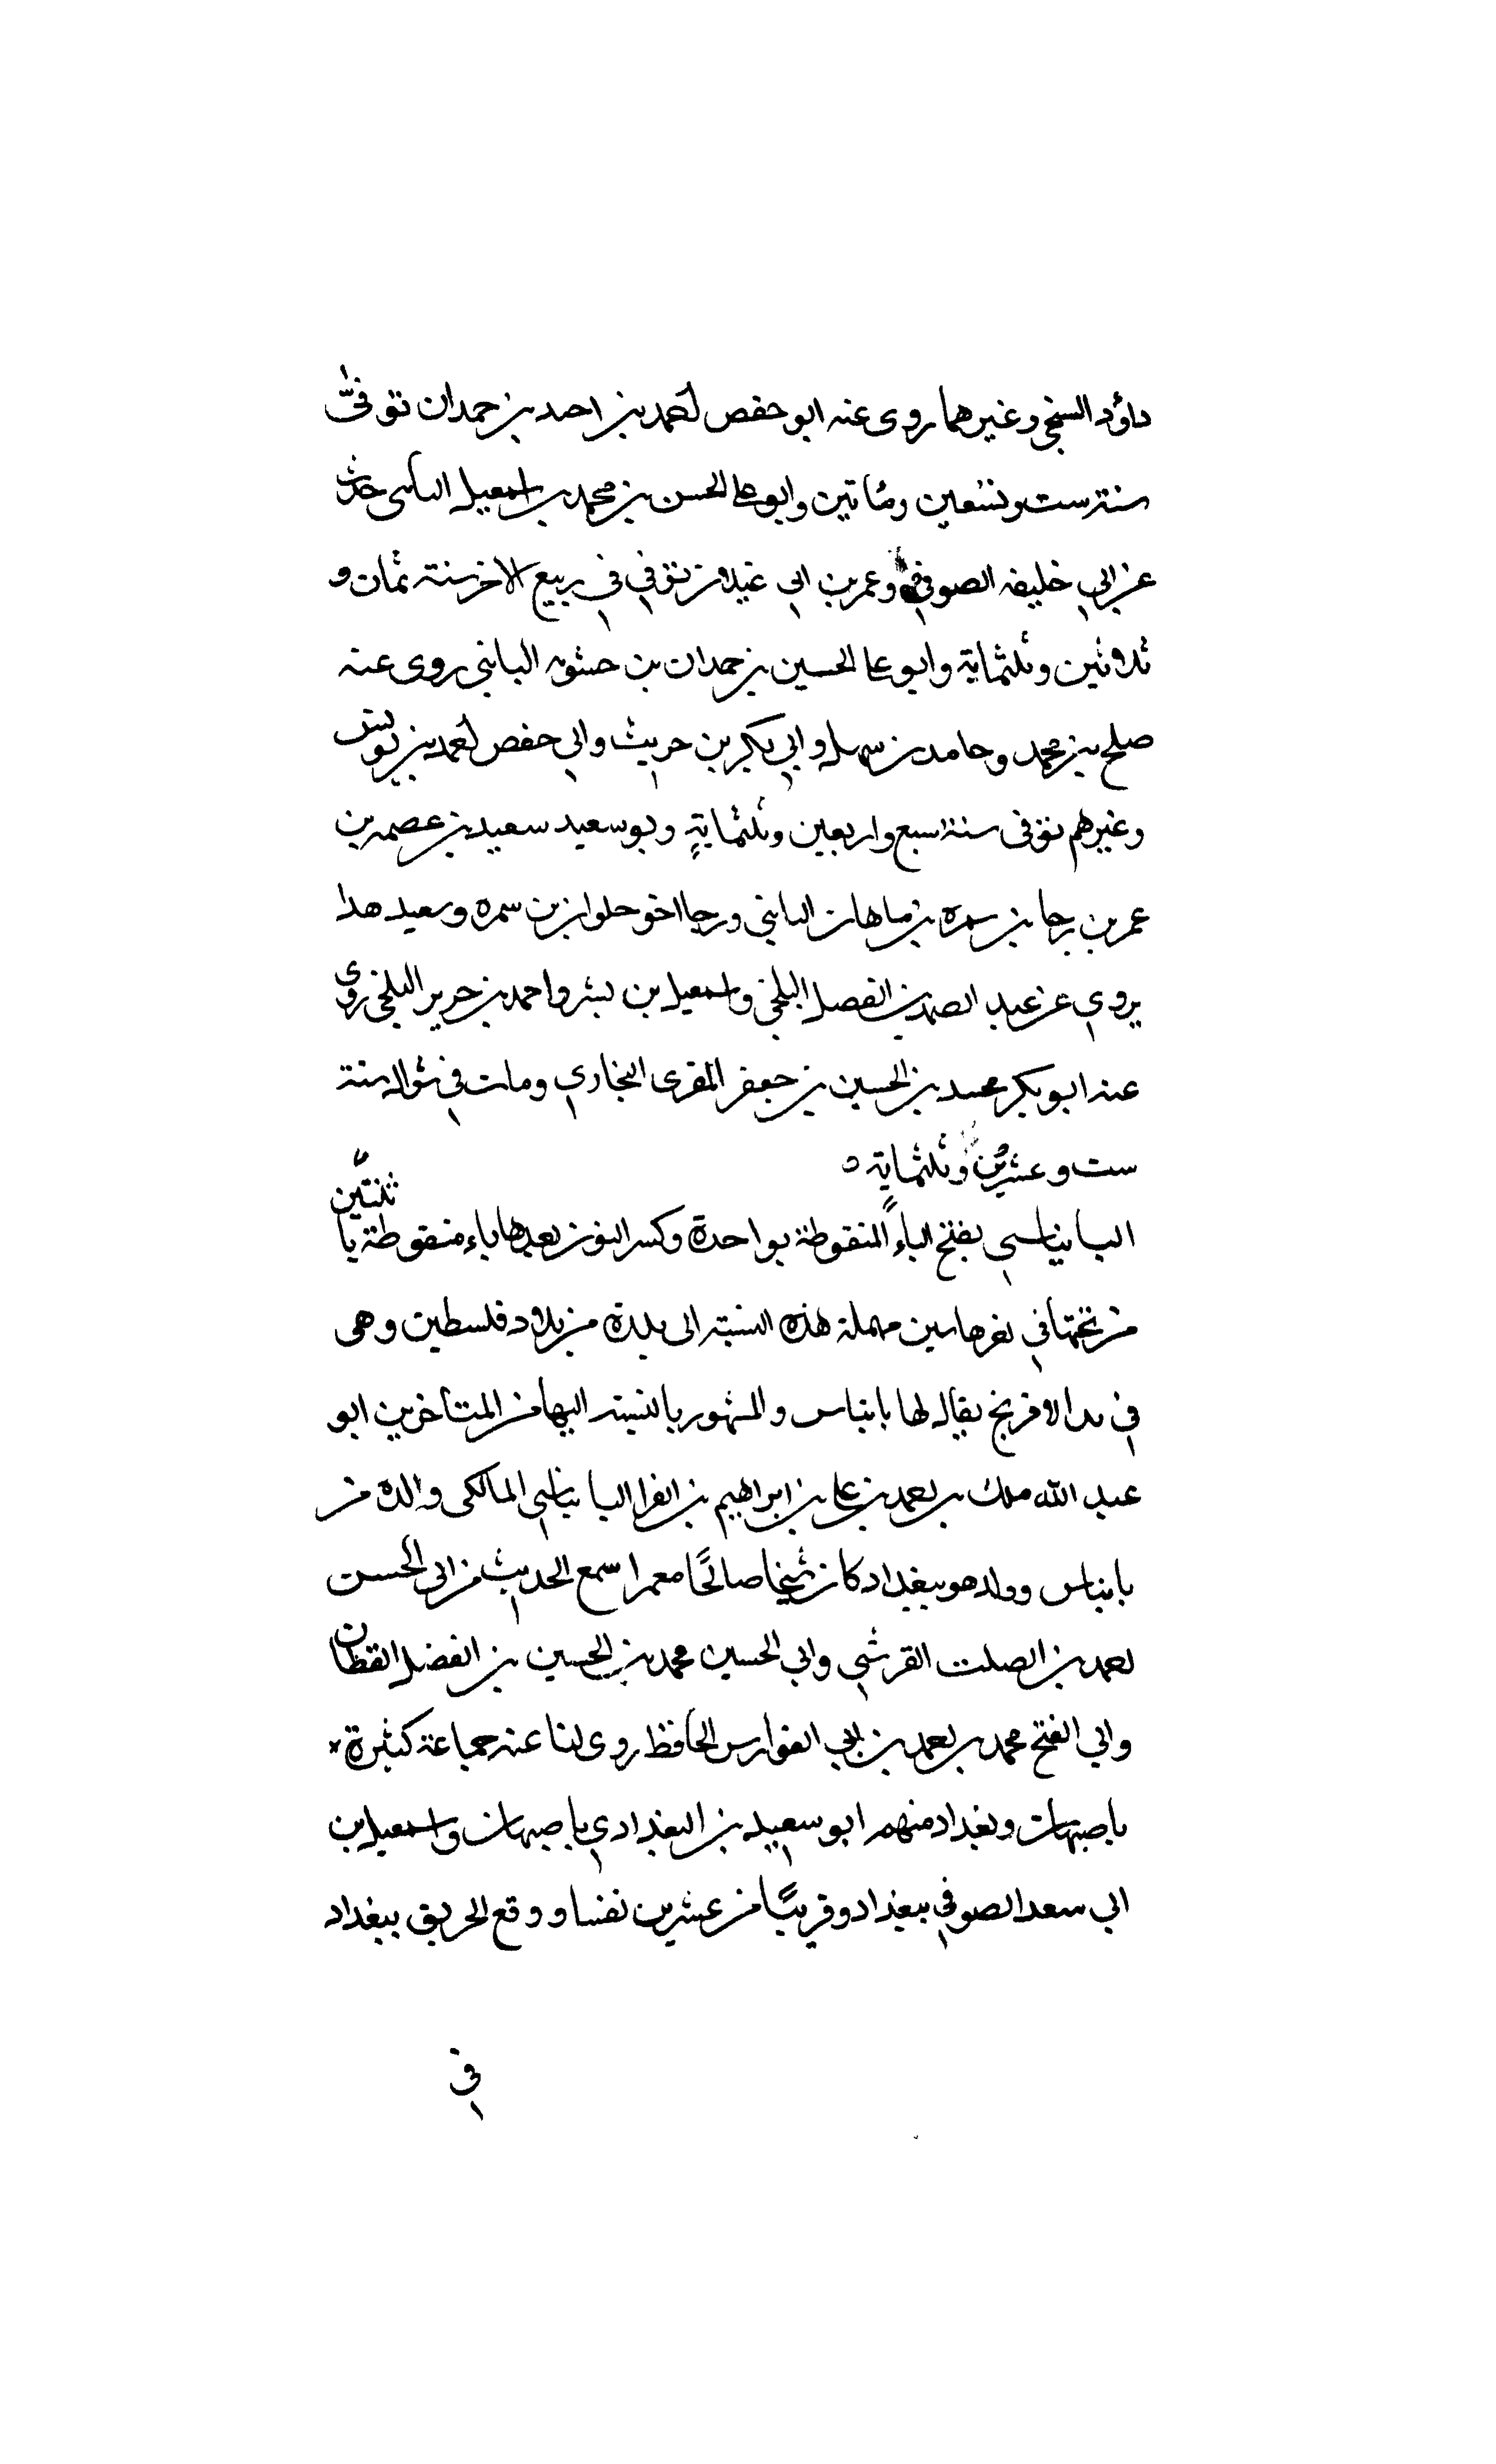 داؤد السنجي وغيرهما روى عنه ابو حفص احمد بن احمد بن حمدان توفي
سنة ست وتسعين ومائتين وابو علي الحسن بن محمد بن اسمعيل البابنى حدث
عن ابي خليفه الصوفي وعمر بن ابي غيلان توفي في ربيع الاخر سنة ثمان و
ثلاثين وثلثماية وابو علي الحسين بن حمدان بن حشويه البابني روى عنه
صلح بن محمد وحامد بن سهل وابي بكر بن حريث وابي حفص احمد بن يونس
وغيرهم توفى سنة سبع واربعين وثلثماية وبو سعيد سعيد بن عصمه بن
عمر بن رجا بن سمره بن ماهان البابني ورجا اخو حلوان بن سمره وسعيد هدا
يروي عن عبد الصمد بن الفصل البلخي واسمعيل بن بشر واحمد بن حرير البلخى روى
عنه ابو بكر محمد بن الحسين بن جعفر المقرى البخاري ومات في شوال سنة
ست وعشرين وثلثماية ه
البانياسي بفتح الباء المنقوطة بواحدة وكسر النون بعدها ياء منقوطة با ثنتين
من تحتها في اخرها سين مهملة هذه النسبة الى بلدة من بلاد فلسطين وهى
في يد الافرنج يقال لها بانياس والمشهور بالنسبة اليها من المتاخرين ابو
عبد الله ملك بن احمد بن علي بن ابراهيم بن الفرا البانياسي المالكى والده من
بانياس وولد هو ببغداد كان شيخا صالحًا معمرا سمع الحديث من ابى الحسن
احمد بن الصلت القرشي وابي الحسين محمد بن الحسين بن الفضل القطان
وابي الفتح محمد بن احمد بن ابي الفوارس الحافظ روى لنا عنه جماعة كثيرة
باصبهان وبغداد منهم ابو سعيد بن البغدادي باصبهان واسمعيل بن
ابي سعد الصوفي ببغداد وقريبًا من عشرين نفسا ووقع الحريق ببغداد
في